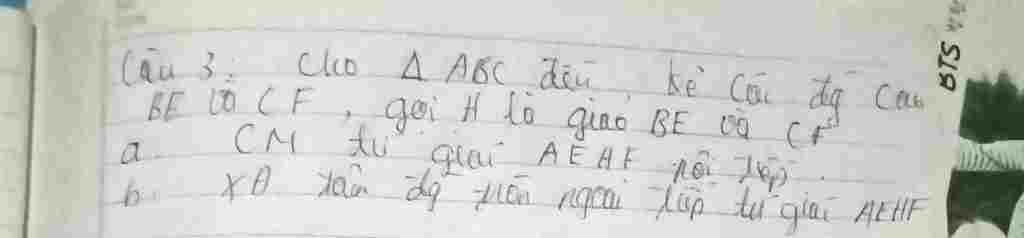 Câu 3: Cho Δ ABC đều, kẻ các đg cao
BE và CF, gọi H là giao BE và CF
a. CM tứ giác AEHF nội tiếp.
b. XĐ tâm đg tròn ngoại tiếp tứ giác AEHF
BTS